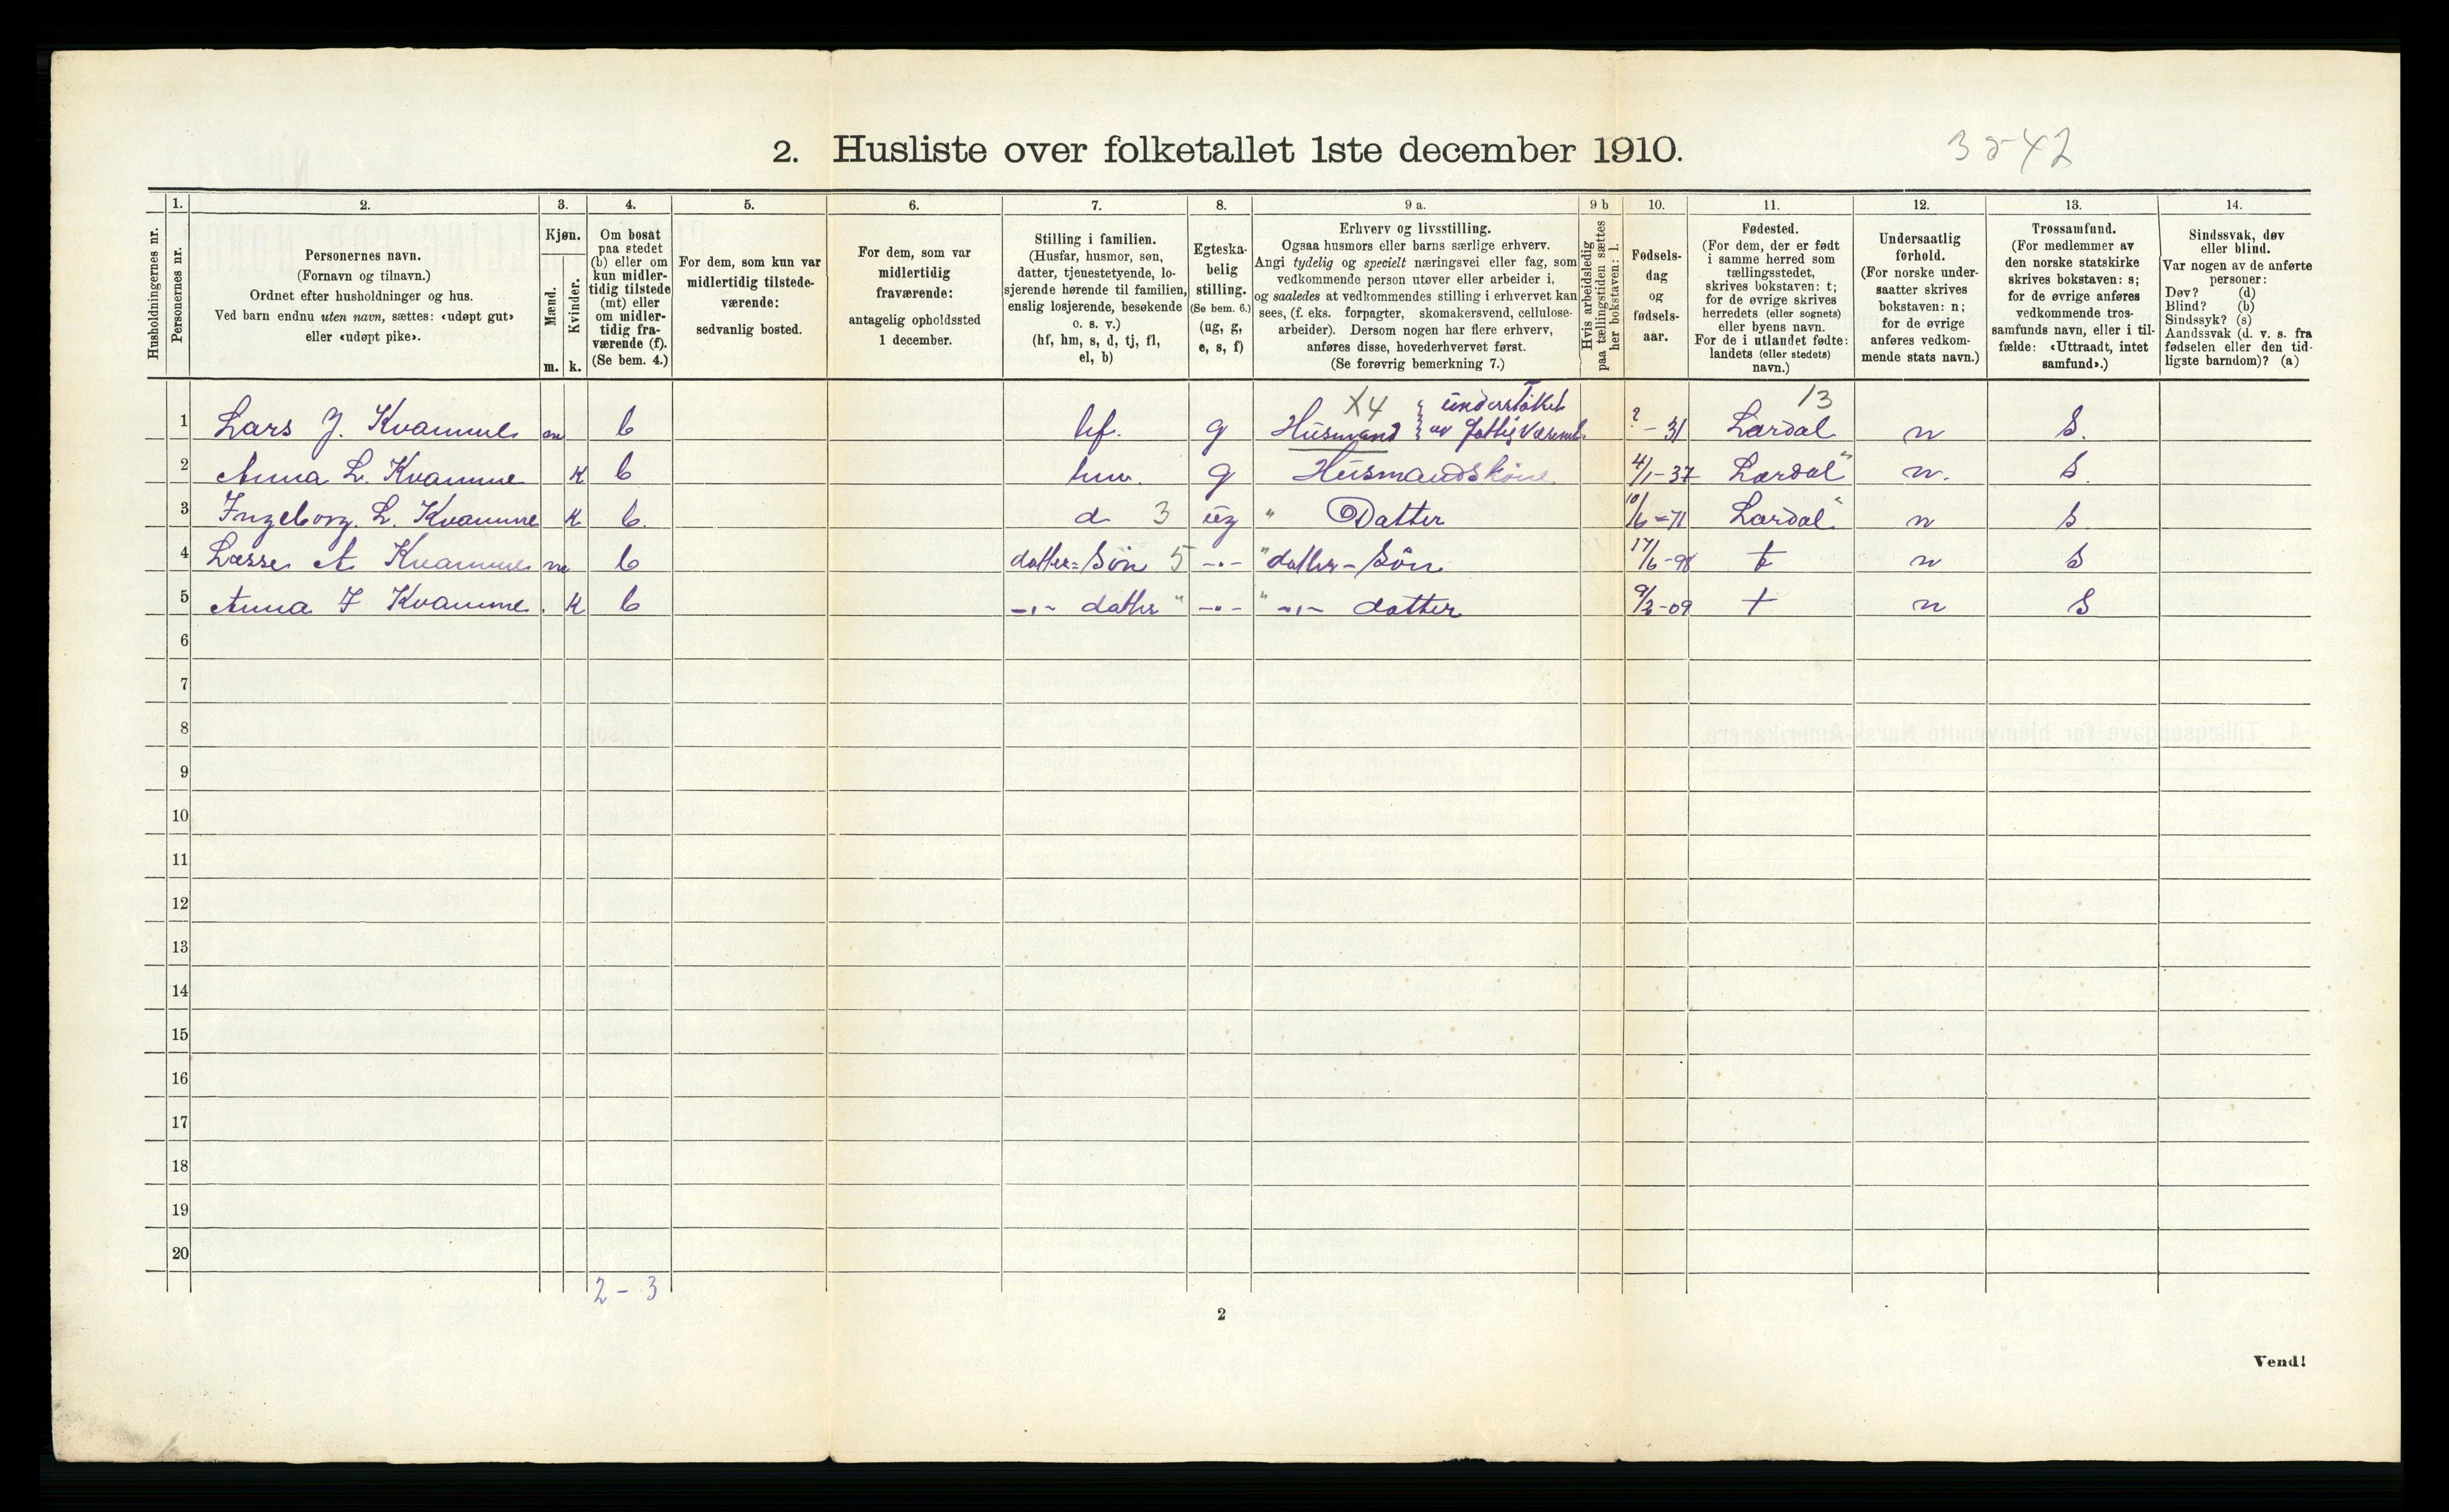 2. Husliste over folketallet 1ste december 1910.
35-42
Husholdningernes nr.
1.
Personernes nr.
2.
Personernes navn.
(Fornavn og tilnavn.)
Ordnet efter husholdninger og hus.
Ved barn endnu uten navn, sættes: «udøpt gut»
eller «udøpt pike».
3.
Kjøn.
Mænd.
Kvinder.
m. k.
4.
Om bosat
paa stedet
(b) eller om
kun midler-
tidig tilstede
(mt) eller
om midler-
tidig fra-
værende (f).
(Se bem. 4.)
5.
For dem, som kun var
midlertidig tilstede-
værende:
sedvanlig bosted.
6.
For dem, som var
midlertidig
fraværende:
antagelig opholdssted
1 december.
7.
Stilling i familien.
(Husfar, husmor, søn,
datter, tjenestetyende, lo-
sjerende hørende til familien,
enslig losjerende, besøkende
o. s. v.)
(hf, hm, s, d, tj, fl,
el, b)
8.
Egteska-
belig
stilling.
(Se bem. 6.)
(ug, g,
e, s, f)
9 a.
Erhverv og livsstilling.
Ogsaa husmors eller barns særlige erhverv.
Angi tydelig og specielt næringsvei eller fag, som
vedkommende person utøver eller arbeider i,
og saaledes at vedkommendes stilling i erhvervet kan
sees, (f. eks. forpagter, skomakersvend, cellulose-
arbeider). Dersom nogen har flere erhverv,
anføres disse, hovederhvervet først.
(Se forøvrig bemerkning 7.)
9 b
Hvis arbeidsledig
paa tællingstiden sættes
her bokstaven: l.
10.
Fødsels-
dag
og
fødsels-
aar.
11.
Fødested.
(For dem, der er født
i samme herred som
tællingsstedet,
skrives bokstaven: t;
for de øvrige skrives
herredets (eller sognets)
eller byens navn.
For de i utlandet fødte:
landets (eller stedets)
navn.)
12.
Undersaatlig
forhold.
(For norske under-
saatter skrives
bokstaven: n;
for de øvrige
anføres vedkom-
mende stats navn.)
13.
Trossamfund.
(For medlemmer av
den norske statskirke
skrives bokstaven: s;
for de øvrige anføres
vedkommende tros-
samfunds navn, eller i til-
fælde: «Uttraadt, intet
samfund».)
14.
Sindssvak, døv
eller blind.
Var nogen av de anførte
personer:
Døv? (d)
Blind? (b)
Sindssyk? (s)
Aandssvak (d. v. s. fra
fødselen eller den tid-
ligste barndom)? (a)
X4 understøket 13
1 Lars J. Kvamme m b hf. g Husmand av ? - 31 Lærdal n S.
2 Anna L. Kvamme K b hm. g Husmandskone 4/1-37 Lærdal " n. S.
3 Ingeborg. L. Kvamme K b. d 3 ug " Datter 10/6-71 Lærdal " n S.
4 Lasse A Kvamme m b datter=Søn 5 -"- " datter-Søn 17/6-98 t n S
5 Anna I Kvamme. K b -"- datter " -"- " -"- datter 9/3-09 t n S
6
7
8
9
10
11
12
13
14
15
16
17
18
19
20
2 - 3
2
Vend!